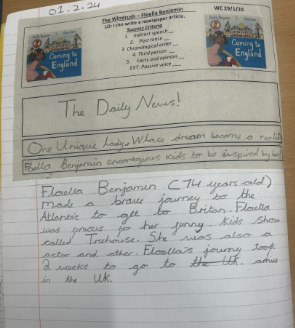 01.2.24
The Windrush – Floella Benjamin
WC 29/1/24
LO: I can write a newspaper article.
Success Criteria
1. Indirect speech
2. Past tense
3. Chronological order
4. Third person
5. Facts and opinion
EXT: Passive voice
Coming to England
Coming to England
The Daily News!
One Unique lady, Whose dream became a
Floella Benjamin encourages kids to be inspired by her
Floella Benjamin (74 years old)
made a brave journey to the
Atlantic to get to Britan. Floella
was famous for her funny kids show
called Treehouse. She was also a
actor and other. Floella's journey took
2 weeks to go to the UK.
in the UK.